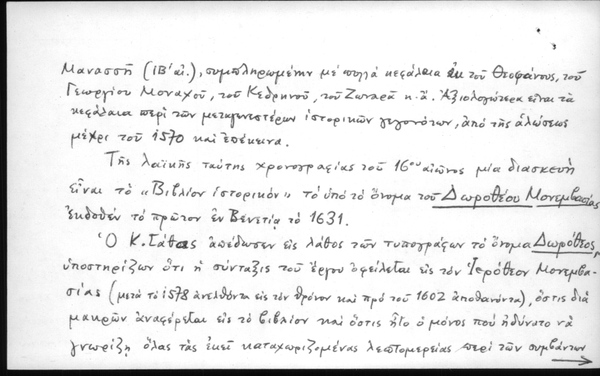 Μανασσῆ (ΙΒ΄ αἰ.), συμπληρωμένην μέ πολλά κεφάλαια ἐκ τοῦ Θεοφάνους, τοῦ
Γεωργίου Μοναχοῦ, τοῦ Κεδρηνοῦ, τοῦ Ζωναρᾶ κ.ἄ. Ἀξιολογώτερα εἶναι τά
κεφάλαια περί τῶν μεταγενεστέρων ἱστορικῶν γεγονότων, ἀπό τῆς ἁλώσεως
μέχρι τοῦ 1570 καί ἐπέκεινα.
Τῆς λαϊκῆς ταύτης χρονογραφίας τοῦ 16ου αἰῶνος μία διασκευή
εἶναι τό «Βιβλίον ἱστορικόν» τό ὑπό τό ὄνομα τοῦ Δωροθέου Μονεμβασίας
ἐκδοθέν τό πρῶτον ἐν Βενετίᾳ τό 1631.
Ὁ Κ. Σάθας ἀπέδωσεν εἰς λάθος τῶν τυπογράφων τό ὄνομα Δωρόθεος,
ὑποστηρίζων ὅτι ἡ σύνταξις τοῦ ἔργου ὀφείλεται εἰς τόν Ἱερόθεον Μονεμβα-
σίας (μετά τό 1578 ἀνελθόντα εἰς τόν θρόνον καί πρό τοῦ 1602 ἀποθανόντα), ὅστις διά
μακρῶν ἀναφέρεται εἰς τό βιβλίον καί ὅστις ἦτο ὁ μόνος πού ἠδύνατο νά
γνωρίζῃ ὅλας τάς ἐκεῖ καταχωριζομένας λεπτομερείας περί τῶν συμβάντων